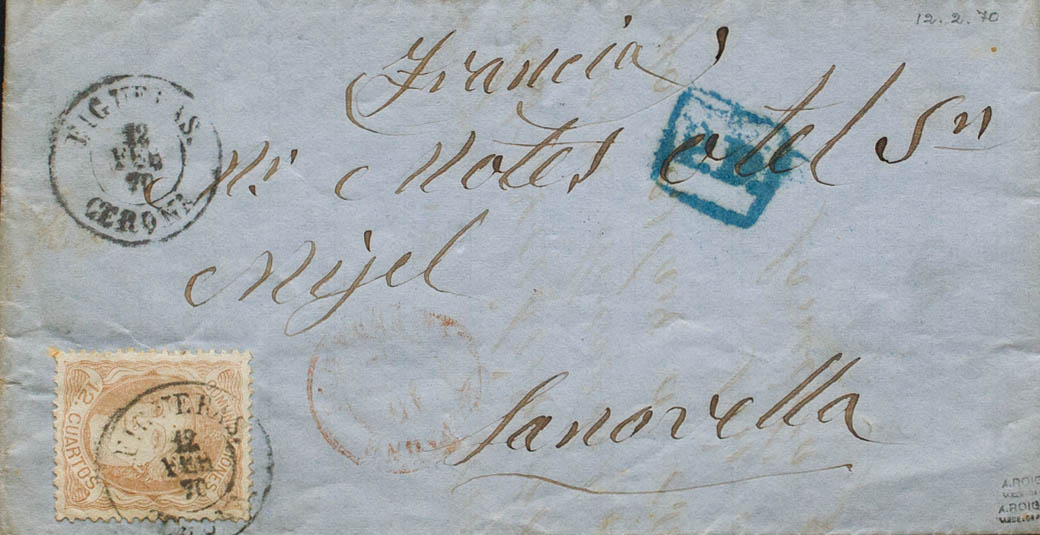 12. 2. 70
Francia
FIGUERAS.
12
FEB
70
GERONA
Mr Motes otel Sn
Mijel
Sanorella
12 CUARTOS
FIGUERAS
12
FEB
70
A.ROIG
A.ROIG